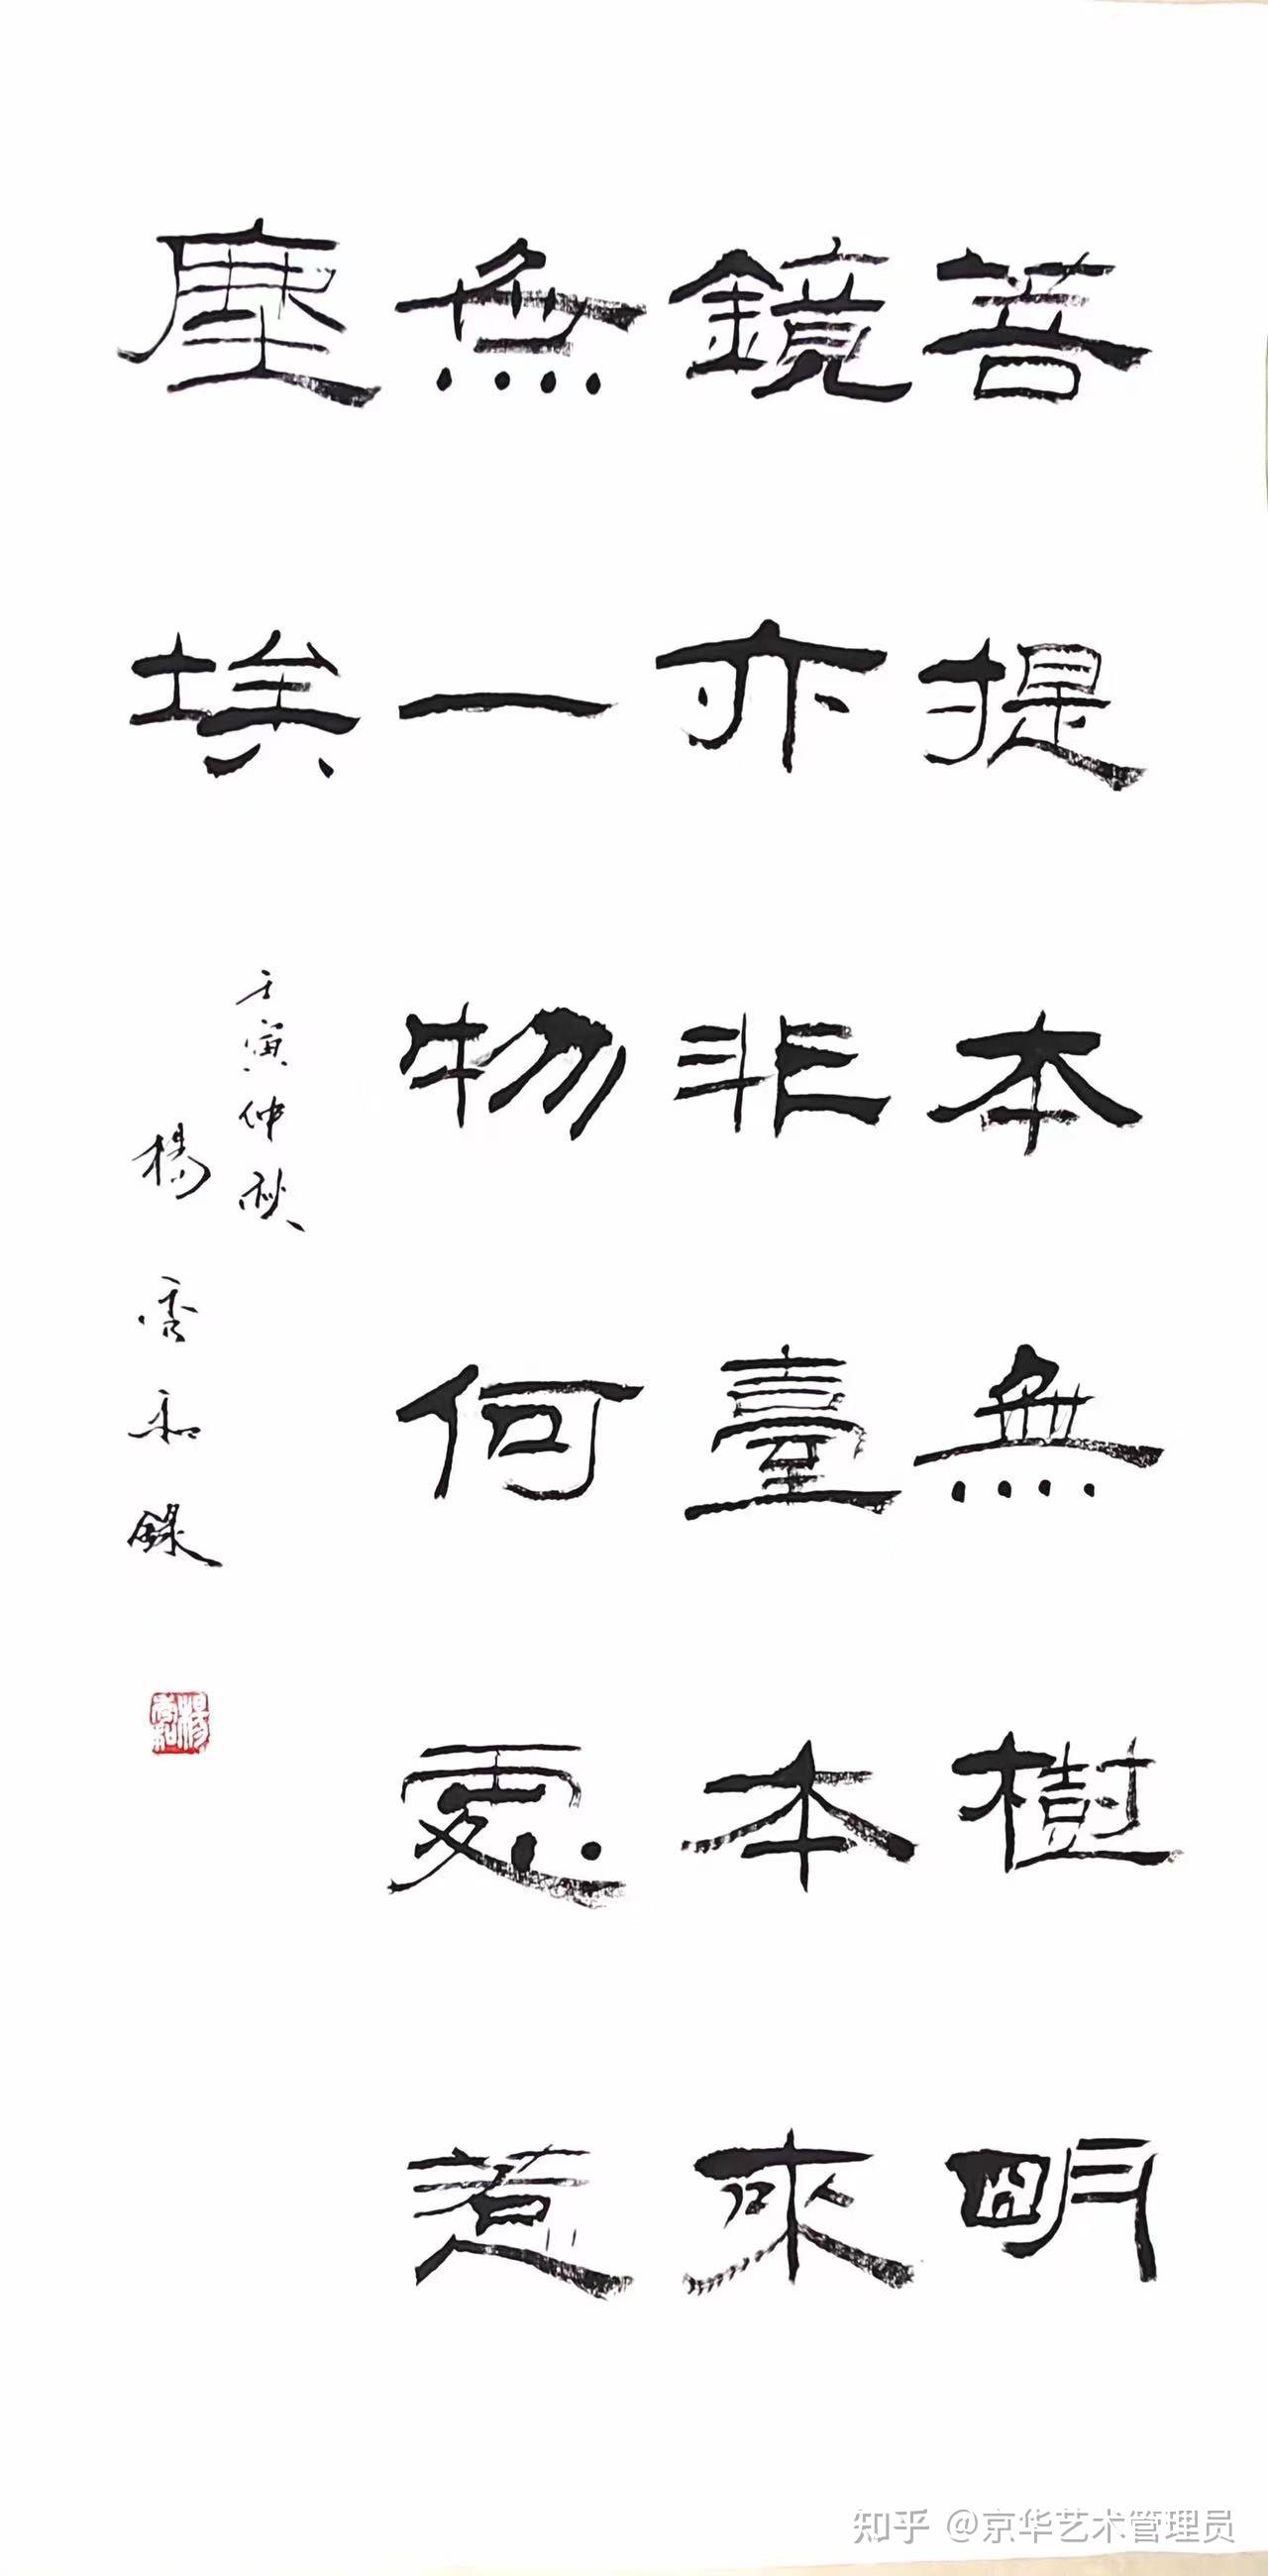 菩提本無樹明
鏡亦非臺本來
無一物何處惹
塵埃
壬寅仲秋
楊和錄
知乎 @京华艺术管理员